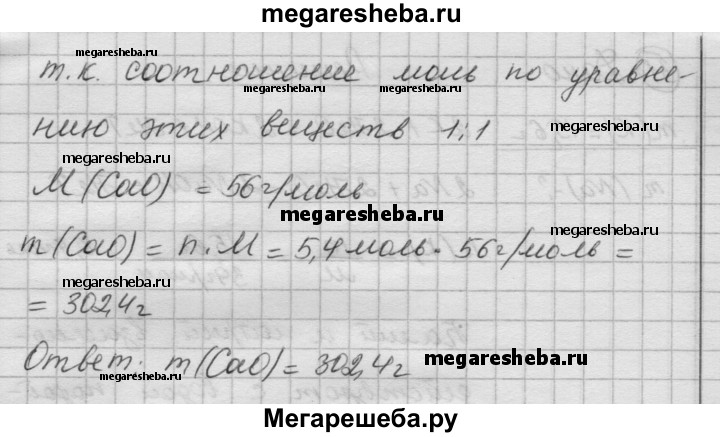 megaresheba.ru
т.к. соотношение моль по уравне-
megaresheba.ru megaresheba.ru megaresheba.ru
нию этих веществ 1:1
megaresheba.ru
megaresheba.ru
M(CaO) = 56г/моль
megaresheba.ru
m(CaO) = n.M = 5,4моль. 56г/моль =
megaresheba.ru
= 302,4г
Ответ: m(CaO) = 302,4г
megaresheba.ru
megaresheba.ru
Мегарешеба.ру